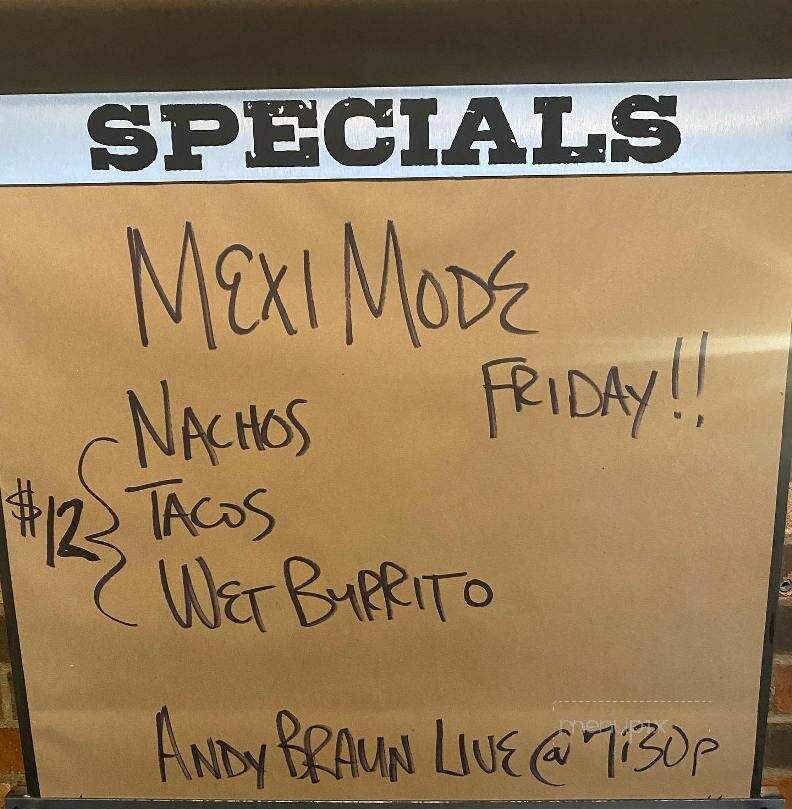 SPECIALS
MEXI MODE
FRIDAY!!
NACHOS
$12 { TACOS
WET BURRITO
ANDY BRAUN LIVE @ 7:30P
menupix